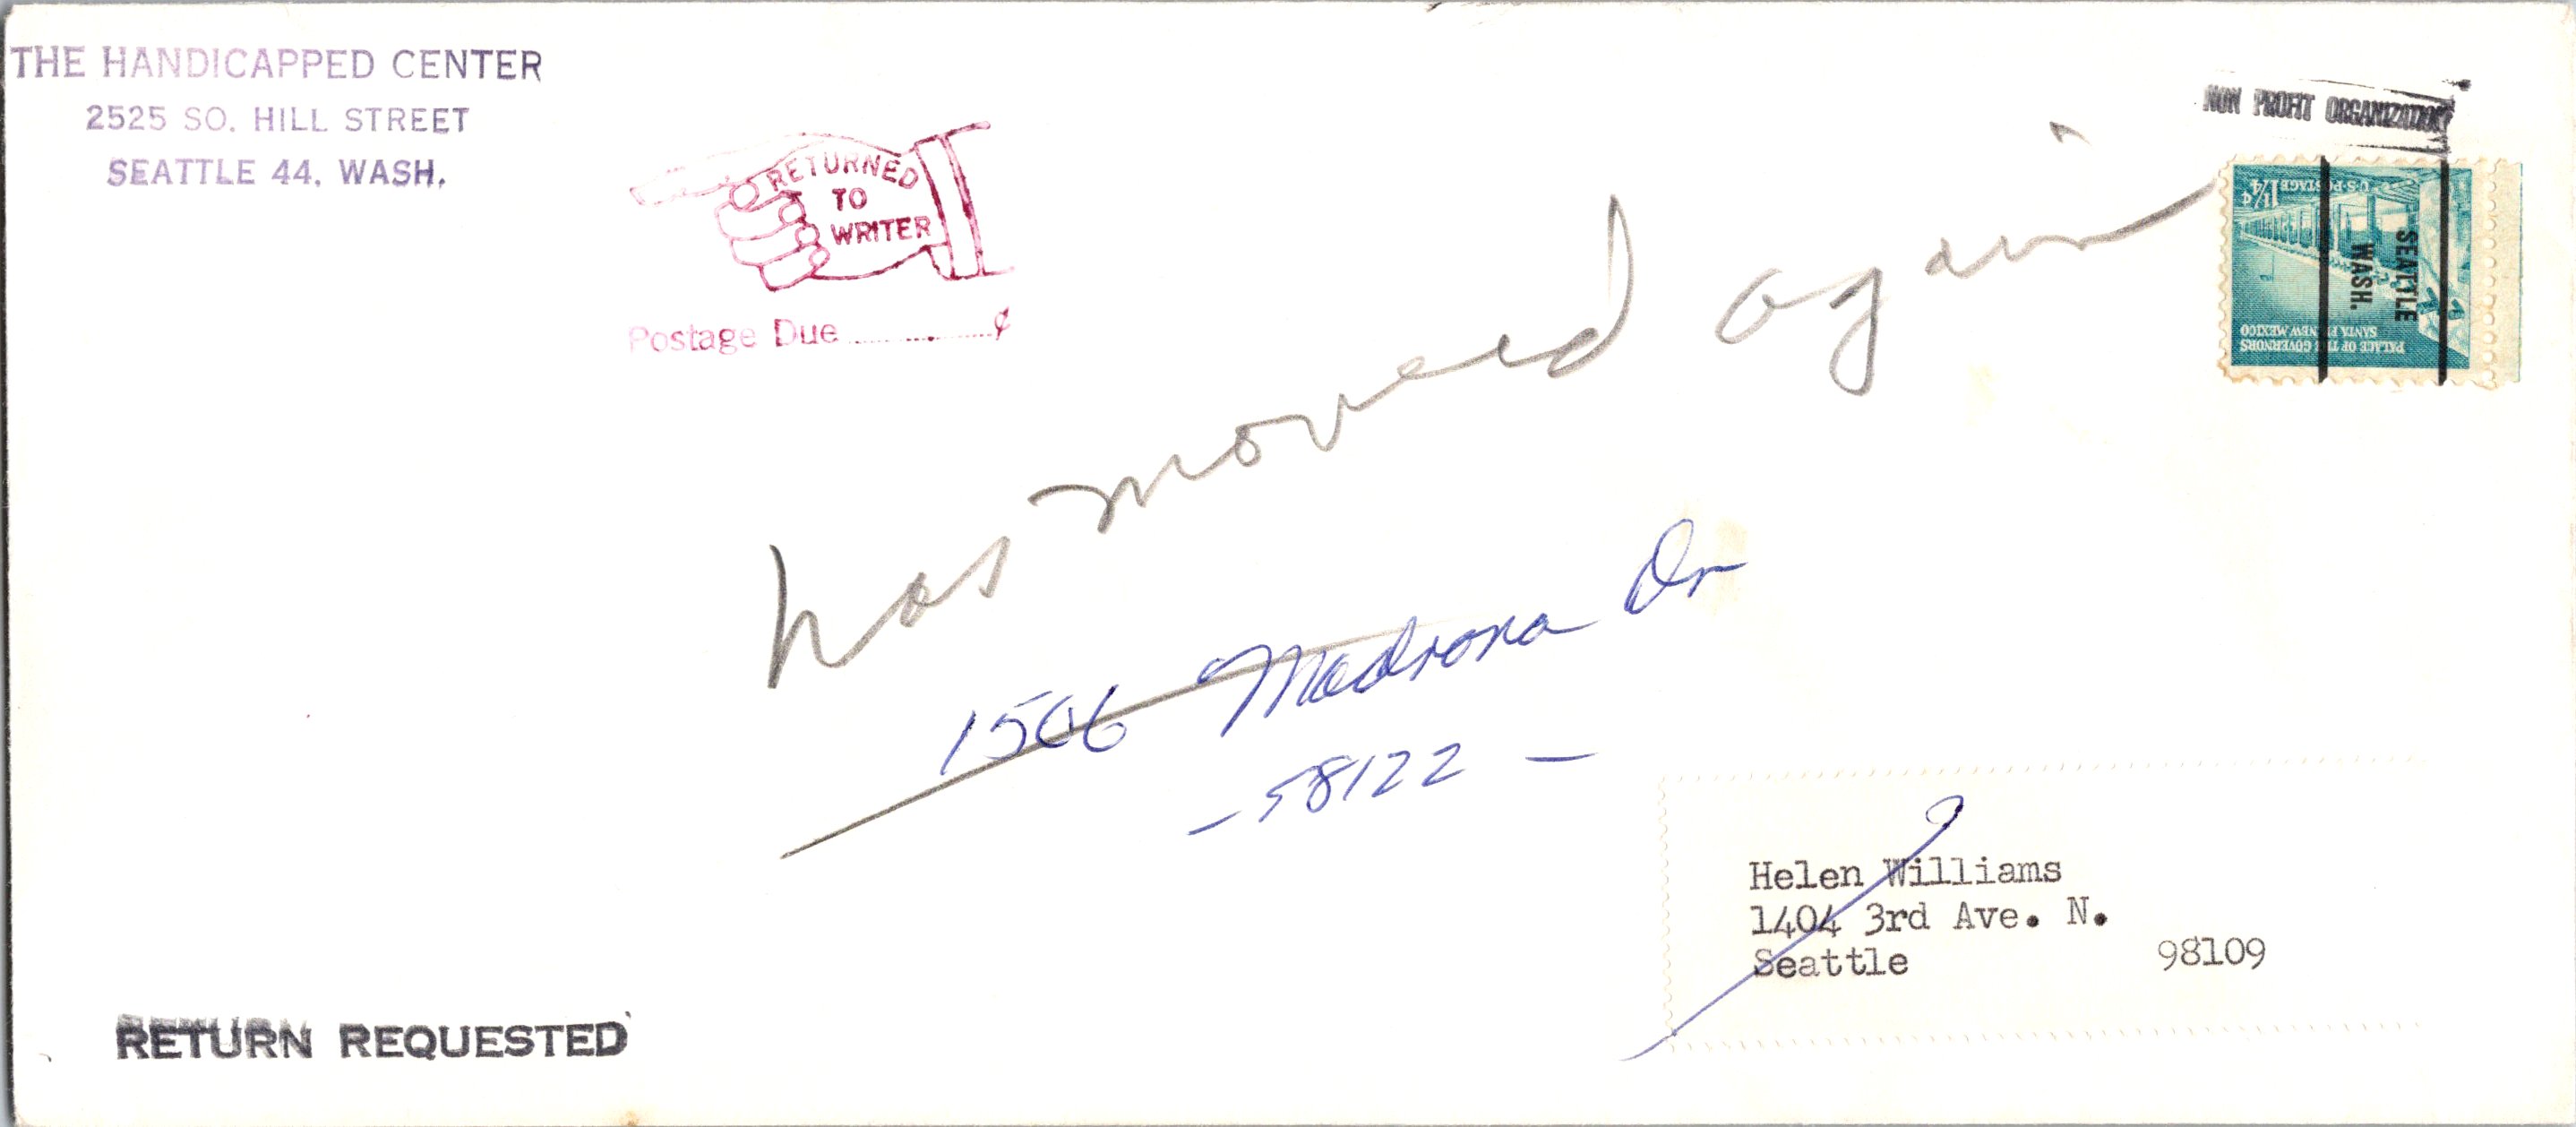 THE HANDICAPPED CENTER
2525 SO. HILL STREET
SEATTLE 44, WASH.
RETURNED
TO
WRITER
Postage Due ............¢
NON PROFIT ORGANIZATION
U·S·POSTAGE 1¼¢
SEATTLE
WASH.
PALACE OF THE GOVERNORS
SANTA FE, NEW MEXICO
has moved again
1506 Madrona Dr
- 58122 -
Helen Williams
1404 3rd Ave. N.
Seattle 98109
RETURN REQUESTED